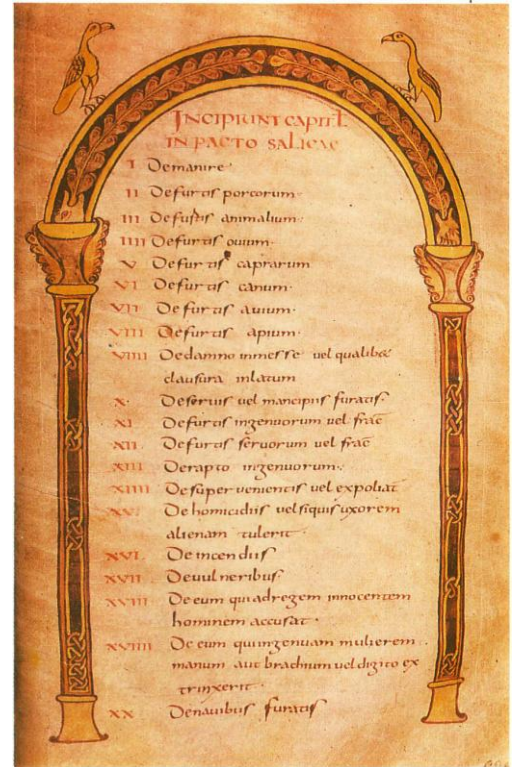 INCIPIUNT CAPITL
IN PACTO SALICAE
I De manire·
II De furtis porcorum·
III De furtis animalium·
IIII De furtis ovium·
V De furtis caprarum
VI De furtis canum·
VII De furtis avium·
VIII De furtis apium·
VIIII De damno inmesse vel qualibet
clausura inlatum
X· De servis vel mancipiis furatis·
XI· De furtis ingenuorum vel frac̄
XII· De furtis servorum vel frac̄
XIII De rapto ingenuorum:·
XIIII De super venientis vel expoliat
XV· De homicidiis vel siquis uxorem
alienam tulerit·
XVI· De incendiis
XVII De vulneribus·
XVIII De eum qui ad regem innocentem
hominem accusat·
XVIIII De eum qui ingenuam mulierem·
manum aut brachium vel digito ex
trinxerit·
XX De navibus furatis